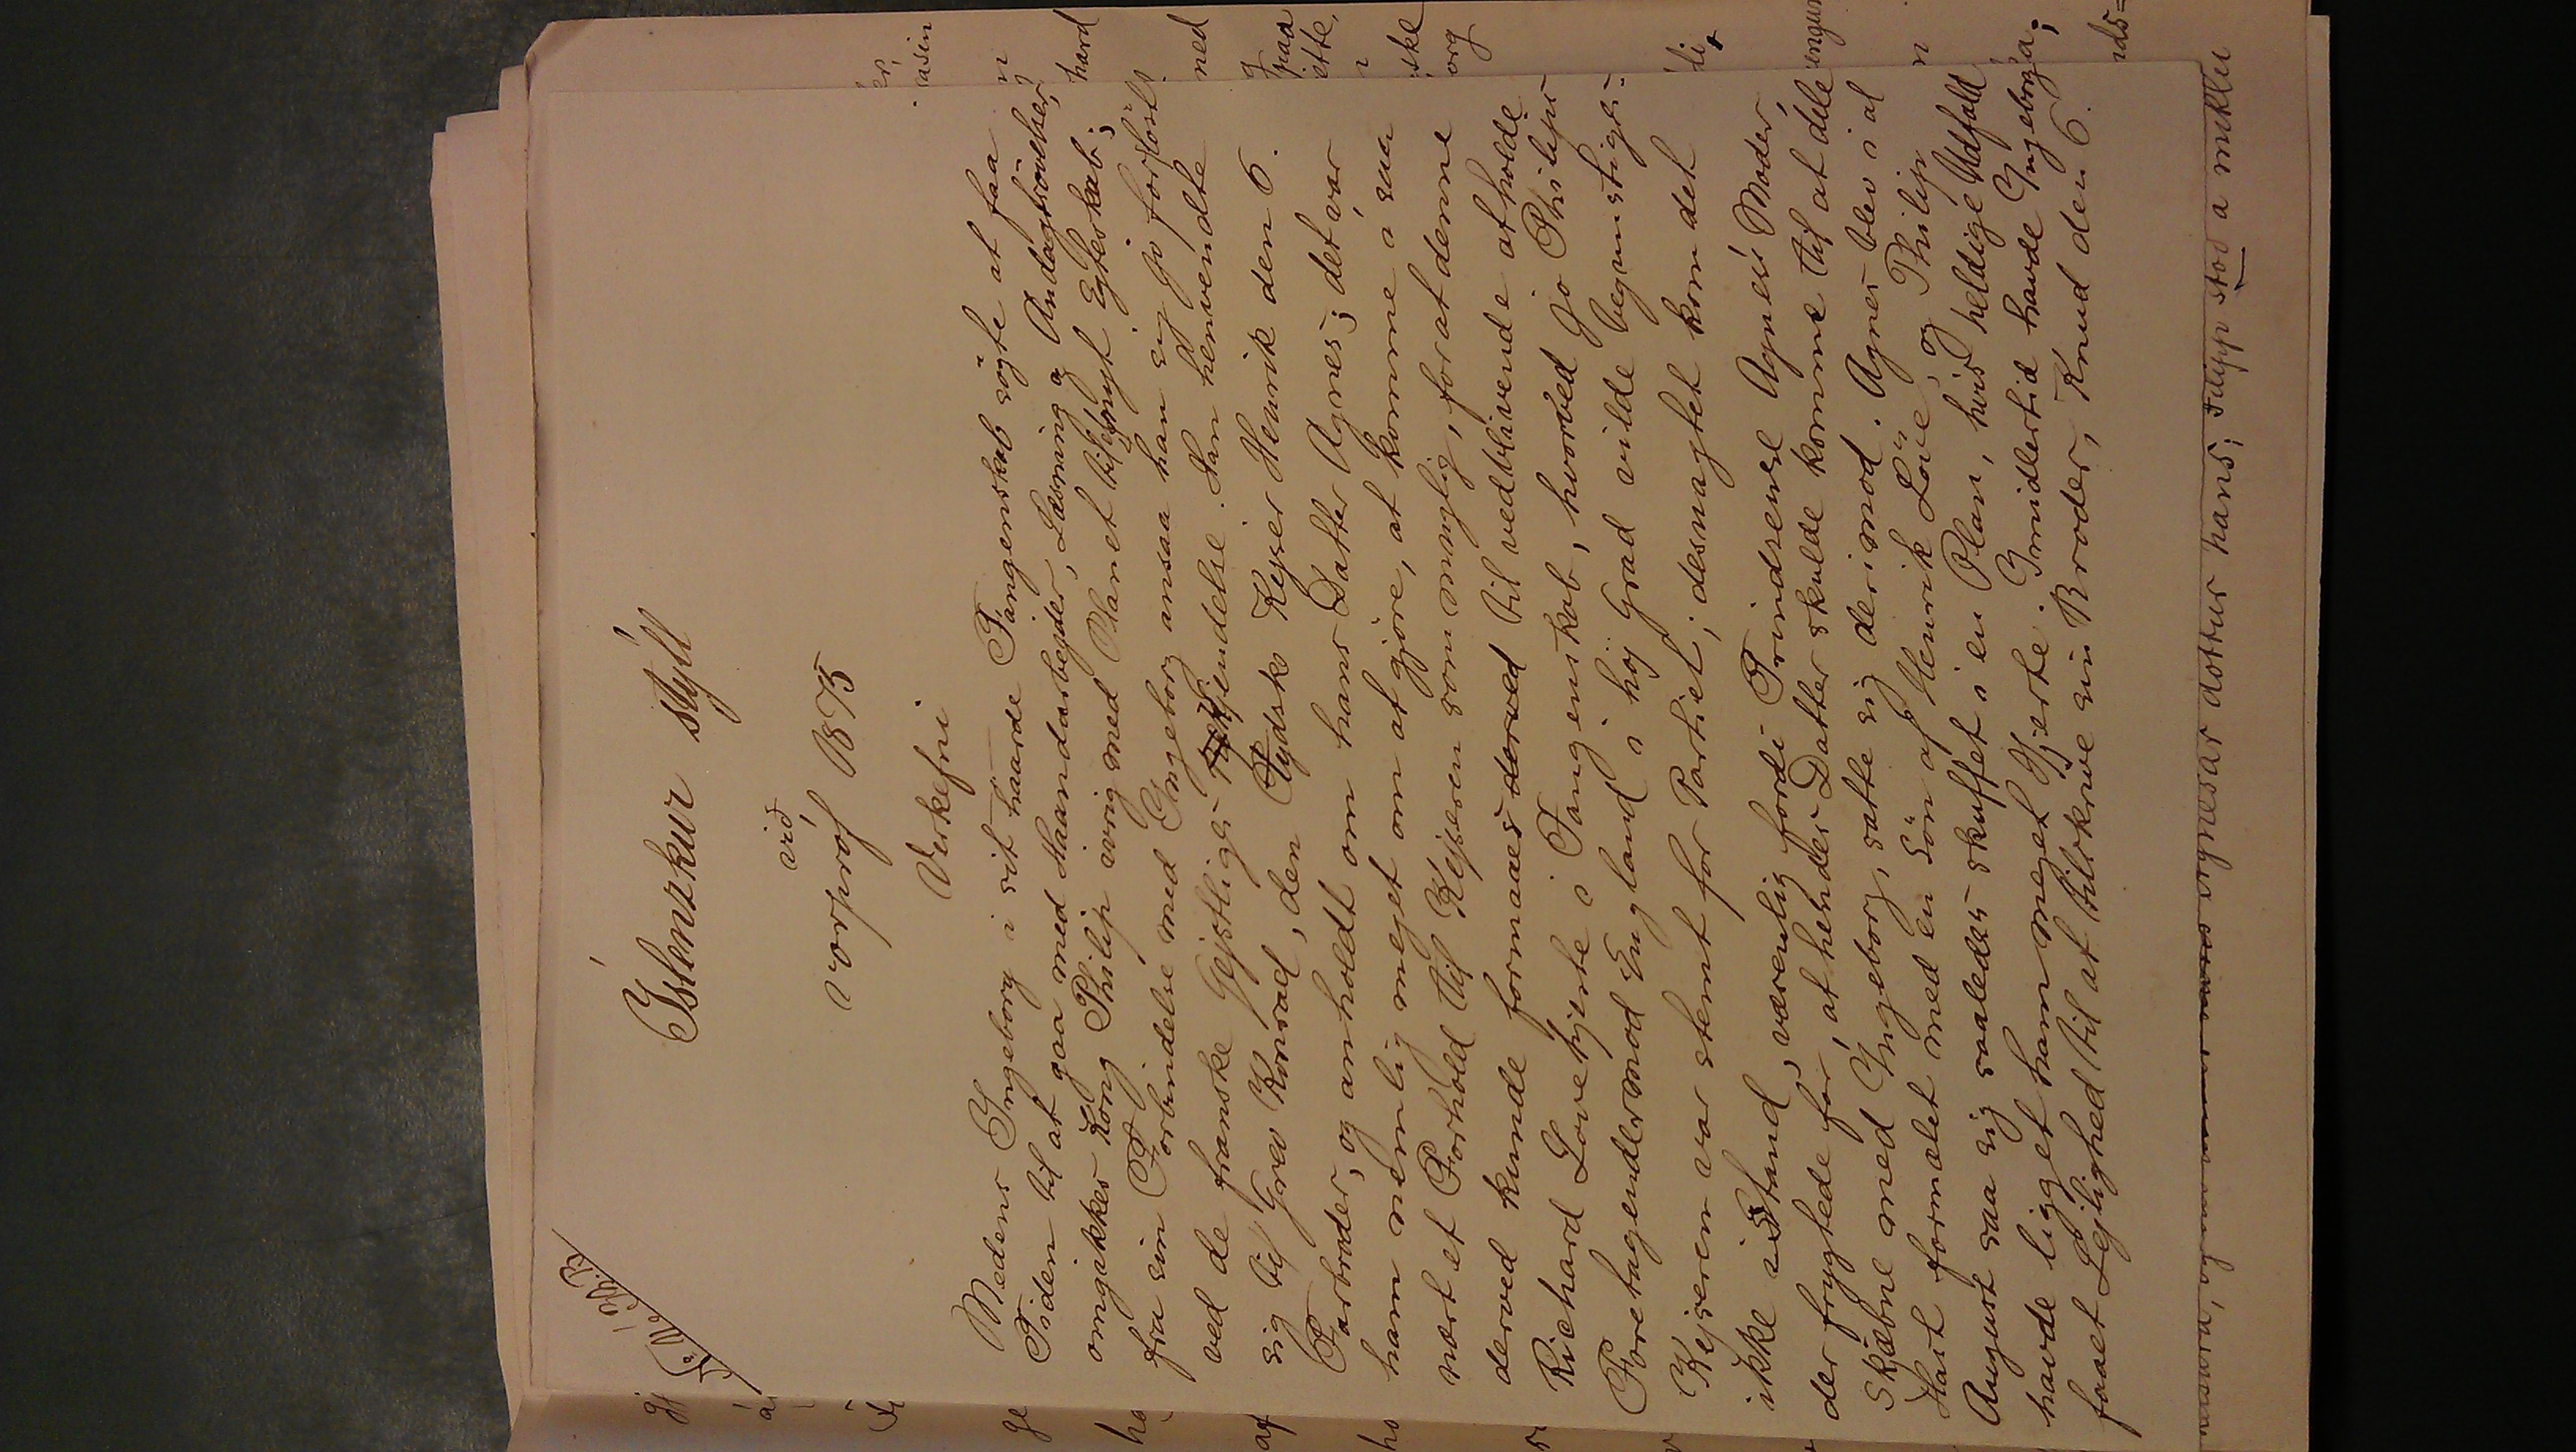 Íslenzkur stýll
við
vorpróf 1873
Verkefni
Medens Ingeborg i sit haarde Fangenskab søgte at faa
Tiden til at gaa med Haandarbejder, Læsning og Andagtsøvelser,
omgikkes Kong Philip ivrig med Planet til nyt Egteskab;
fra sin Forbindelse med Ingeborg ansaa han sig jo forløst
ved de franske Gejstliges Kjendelse. Han henvendte
sig til Grev Konrad, den Tydske Kejser Henrik den 6.
Farbroder, og anholdt om hans Datter Agnes; det var
ham nemlig meget om at gjøre, at komme i saa
nært et Forhold til Kejseren som mulig, for at denne
derved kunde formaaes derved til vedblivende at holde
Richard Løvehjerte i Fangenskab, hvorved jo Philips
Foretagender mod England i høj Grad vilde begunstiges.
Kejseren var stemt for Partiet; desmagtet kom det
ikke istand, væsentlig fordi Prindsesse Agnes's Moder,
der frygtede for, at hendes Datter skulde komme til at dele
Skjæbne med Ingeborg, satte sig derimod. Agnes blev i al
Hast formælet med en Søn af Henrik Løve, og Philip
August saa sig saaledes skuffet i en Plan, hvis heldige Udfald
havde ligget ham meget paa Hjerte. Imidlertid havde Ingeborg
faaet Lejlighed til at tilskrive sin Broder, Knud den 6.
Agnesar dóttur hans; Filipp stóð á miklu